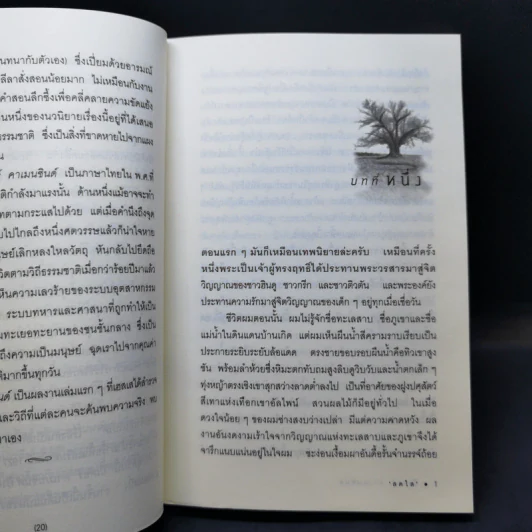 นทนากับตัวเอง) ซึ่งเปี่ยมด้วยอารมณ์
ลีลาสั่งสอนน้อยมาก ไม่เหมือนกับงาน
คำสอนลึกซึ้งเพื่อคลี่คลายความขัดแย้ง
นหนึ่งของนวนิยายเรื่องนี้อยู่ที่ได้เสนอ
รรมชาติ ซึ่งเป็นสิ่งที่ขาดหายไปจากแผง
น
คาเมนซินด์ เป็นภาษาไทยใน พ.ศ.ที่
ติกำลังมาแรงนั้น ด้านหนึ่งแม้อาจจะทำ
ทตามกระแสไปด้วย แต่เมื่อคำนึงถึงจุด
บไปไกลถึงหนึ่งศตวรรษแล้วก็น่าใจหาย
นุษย์เลิกหลงใหลวัตถุ หันกลับไปยึดถือ
วิตตามวิถีธรรมชาติเมื่อกว่าร้อยปีมาแล้ว
ห็นความเลวร้ายของระบบอุตสาหกรรม
ระบบทหารและศาสนาที่ถูกทำให้เป็น
ทะเยอทะยานของชนชั้นกลาง ซึ่งเป็น
ถึงความเป็นมนุษย์ ฉุดเราไปจากคุณค่า
ดีมากขึ้นทุกวัน
นด์ เป็นผลงานเล่มแรก ๆ ที่เฮสเสได้สำรวจ
และวิถีที่แต่ละคนจะค้นพบความจริง พบ
าเอง
(20)
บทที่ หนึ่ง
ตอนแรก ๆ มันก็เหมือนเทพนิยายล่ะครับ เหมือนที่ครั้ง
หนึ่งพระเป็นเจ้าผู้ทรงฤทธิ์ได้ประทานพระวรสารมาสู่จิต
วิญญาณของชาวฮินดู ชาวกรีก และชาวติวตัน และพระองค์ยัง
ประทานความรักมาสู่จิตวิญญาณของเด็ก ๆ อยู่ทุกเมื่อเชื่อวัน
ชีวิตผมตอนนั้น ผมไม่รู้จักชื่อทะเลสาบ ชื่อภูเขาและชื่อ
แม่น้ำในดินแดนบ้านเกิด แต่ผมเห็นผืนน้ำสีครามราบเรียบเป็น
ประกายระยิบระยับล้อแดด ตรงชายขอบรอบผืนน้ำคือทิวเขาสูง
ชัน พร้อมลำห้วยซึ่งหิมะตกทับถมสูงลิบดูวิบวับและน้ำตกเล็ก ๆ
ทุ่งหญ้าตรงเชิงเขาสุกสว่างลาดต่ำลงไป เป็นที่อาศัยของฝูงปศุสัตว์
สีเทาแห่งเทือกเขาอัลไพน์ สวนผลไม้ก็มีอยู่ทั่วไป ในเมื่อ
ดวงใจน้อย ๆ ของผมช่างสงบว่างเปล่า มีแต่ความคาดหวัง ผล
งานอันงดงามเร้าใจจากวิญญาณแห่งทะเลสาบและภูเขาจึงได้
จารึกแนบแน่นอยู่ในใจผม ชะง่อนเงื้อมผาอันดื้อรั้นจำนรรจ์ถ้อย
• 1